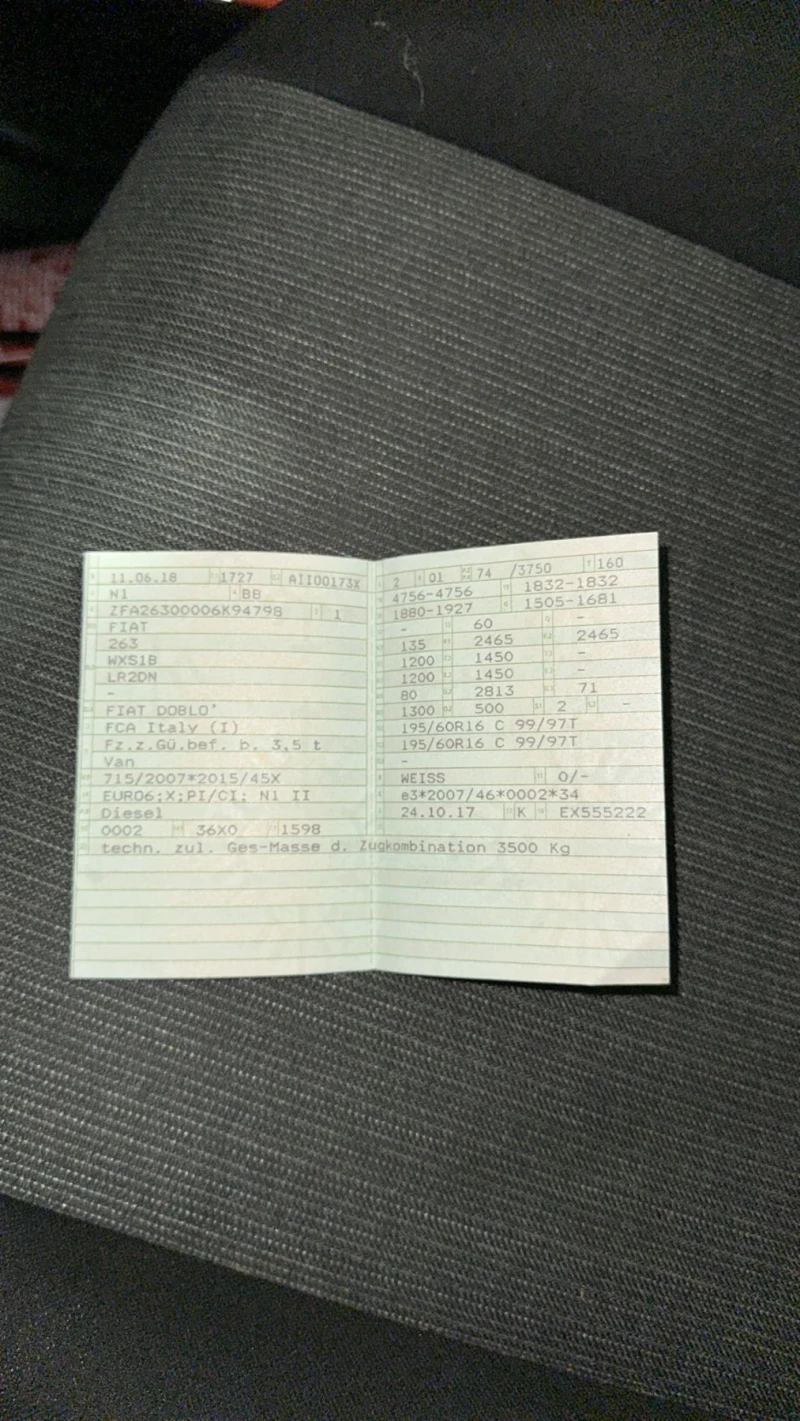 11.06.18 1727 AII00173X
N1 BB
ZFA26300006K94798 1
FIAT
263
WXS1B
LR2DN
-
FIAT DOBLO'
FCA Italy (I)
Fz.z.Gü.bef. b. 3,5 t
Van
715/2007*2015/45X
EURO6;X;PI/CI; N1 II
Diesel
0002 36X0 1598
techn. zul. Ges-Masse d. Zugkombination 3500 Kg
2 01 74 /3750 160
4756-4756 1832-1832
1880-1927 1505-1681
- 60 -
135 2465 2465
1200 1450 -
1200 1450 -
80 2813 71
1300 500 2 -
195/60R16 C 99/97T
195/60R16 C 99/97T
-
WEISS 0/-
e3*2007/46*0002*34
24.10.17 K EX555222